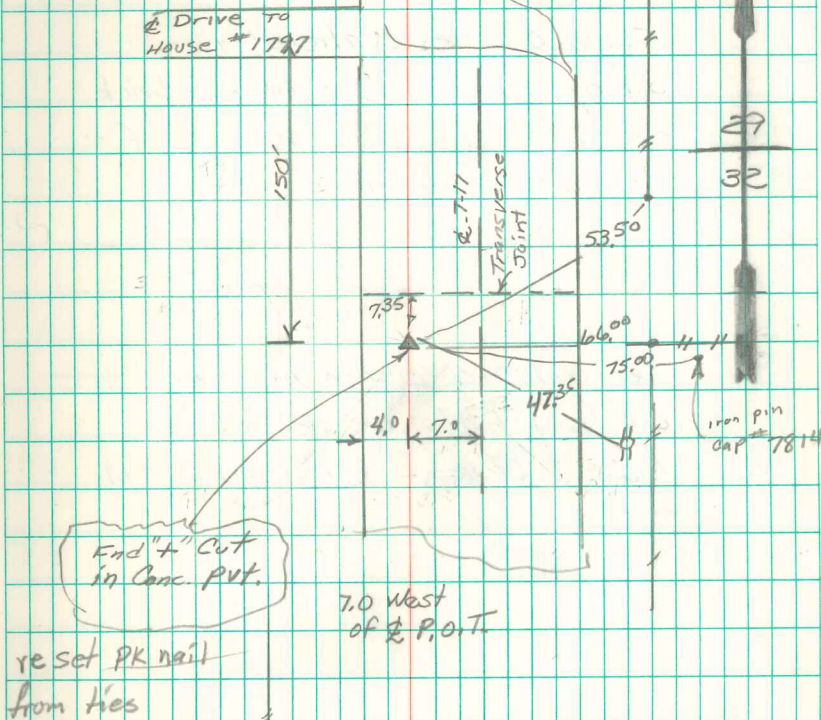 ℄ Drive To
House #1797
29
32
150'
℄-T-17
Transverse
Joint
53.50
7.35
66.00
75.00
47.35
4.0
7.0
iron pin
cap #7814
Fnd "+" Cut
in Conc. Pvt.
7.0 West
of ℄ P.O.T.
re set PK nail
from ties